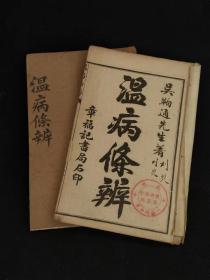 吳鞠通先生著
溫病條辨
章福記書局石印
溫病條辨